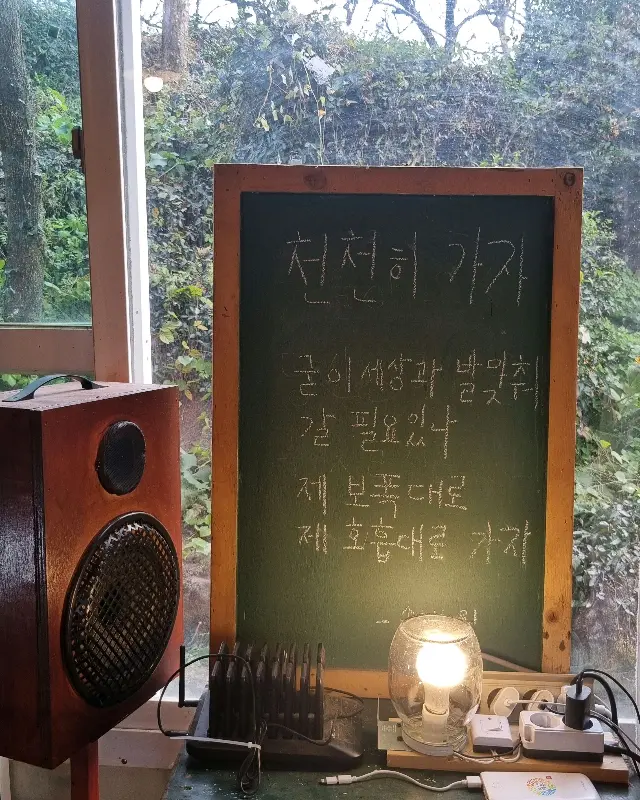 천천히 가자
굳이 세상과 발맞춰
갈 필요있나
제 보폭대로
제 호흡대로 가자